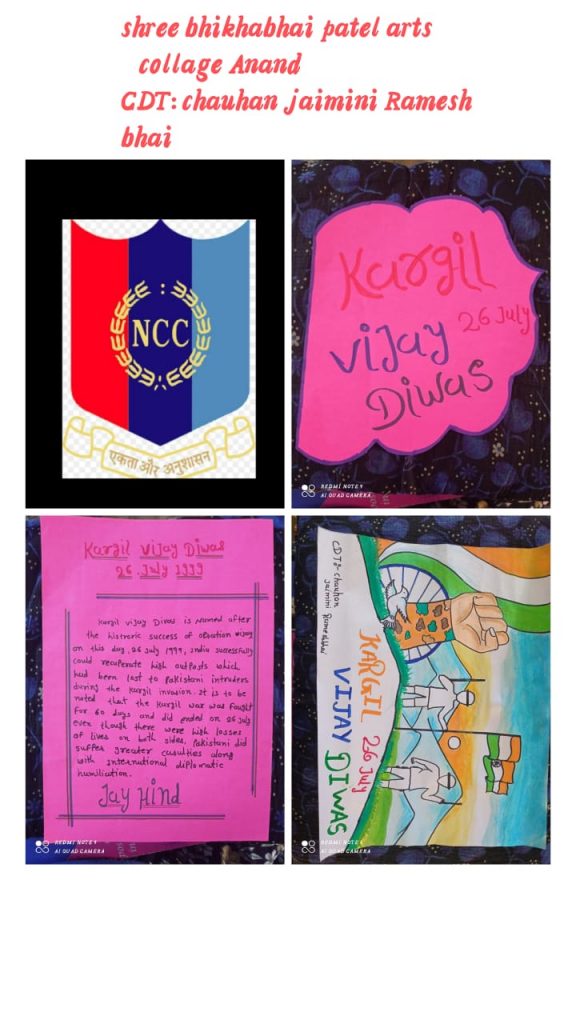 shree bhikhabhai patel arts
collage Anand
CDT: chauhan jaimini Ramesh
bhai
NCC
एकता और अनुशासन
Kargil
26 July
Vijay
Diwas
REDMI NOTE 9
AI QUAD CAMERA
Kargil Vijay Diwas
26 July 1999
Kargil vijay Diwas is Named after
the historic success of opration vijay
on this day, 26 july 1999, india successfully
could recuperate high outposts which
had been lost to Pakistani intruders
during the kargil invasion. It is to be
noted that the kargil war was fought
For 60 days and did ended on 26 July
even though there were high losses
of lives on both sides, Pakistani did
suffer greater casulties along
with International diplomatic
humiliation.
Jay Hind
REDMI NOTE 9
AI QUAD CAMERA
CDT:- chauhan
Jaimini Rameshbhai
KARGIL 26 July
VIJAY DIWAS
REDMI NOTE 9
AI QUAD CAMERA